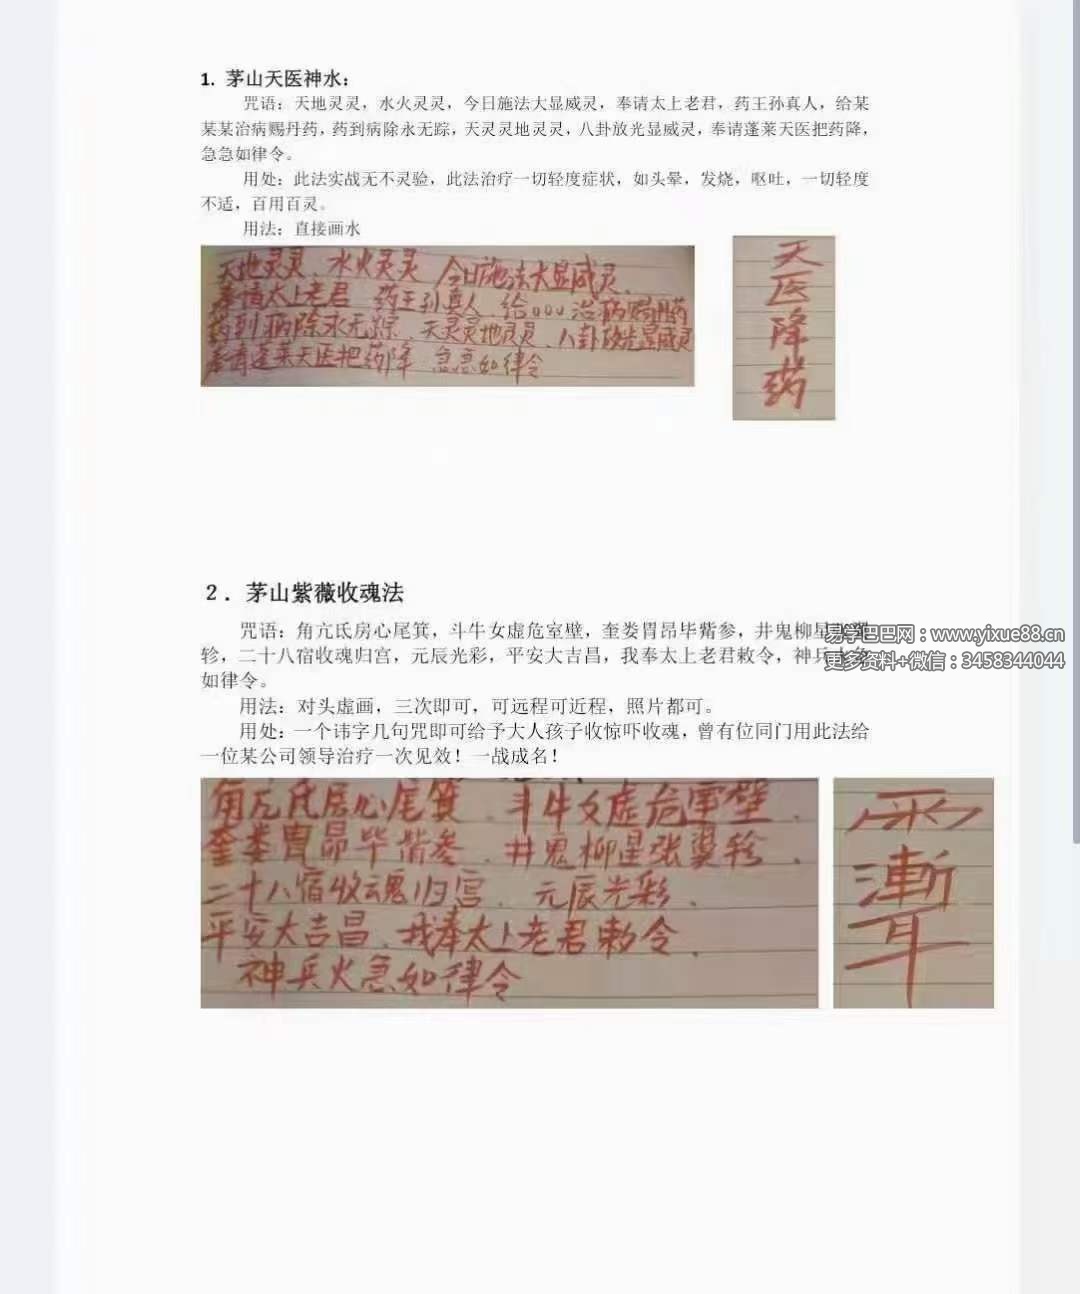 1. 茅山天医神水：
咒语：天地灵灵，水火灵灵，今日施法大显威灵，奉请太上老君，药王孙真人，给某
某某治病赐丹药，药到病除永无踪，天灵灵地灵灵，八卦放光显威灵，奉请蓬莱天医把药降，
急急如律令。
用处：此法实战无不灵验，此法治疗一切轻度症状，如头晕，发烧，呕吐，一切轻度
不适，百用百灵。
用法：直接画水
天地灵灵、水火灵灵 今日施法大显威灵、
奉请太上老君 药王孙真人、给000治病赐丹药
药到病除永无踪、天灵灵地灵灵、八卦放光显威灵
奉请蓬莱天医把药降 急急如律令
天
医
降
药
2．茅山紫薇收魂法
咒语：角亢氐房心尾箕，斗牛女虚危室壁，奎娄胃昴毕觜参，井鬼柳星
轸，二十八宿收魂归宫，元辰光彩，平安大吉昌，我奉太上老君敕令，神兵火急
如律令。
易学巴巴网：www.yixue88.cn
更多资料+微信：3458344044
用法：对头虚画，三次即可，可远程可近程，照片都可。
用处：一个讳字几句咒即可给予大人孩子收惊吓收魂，曾有位同门用此法给
一位某公司领导治疗一次见效！一战成名！
角亢氐房心尾箕、斗牛女虚危室壁、
奎娄胃昴毕觜参、井鬼柳星张翼轸、
二十八宿收魂归宫、元辰光彩、
平安大吉昌、我奉太上老君敕令、
神兵火急如律令